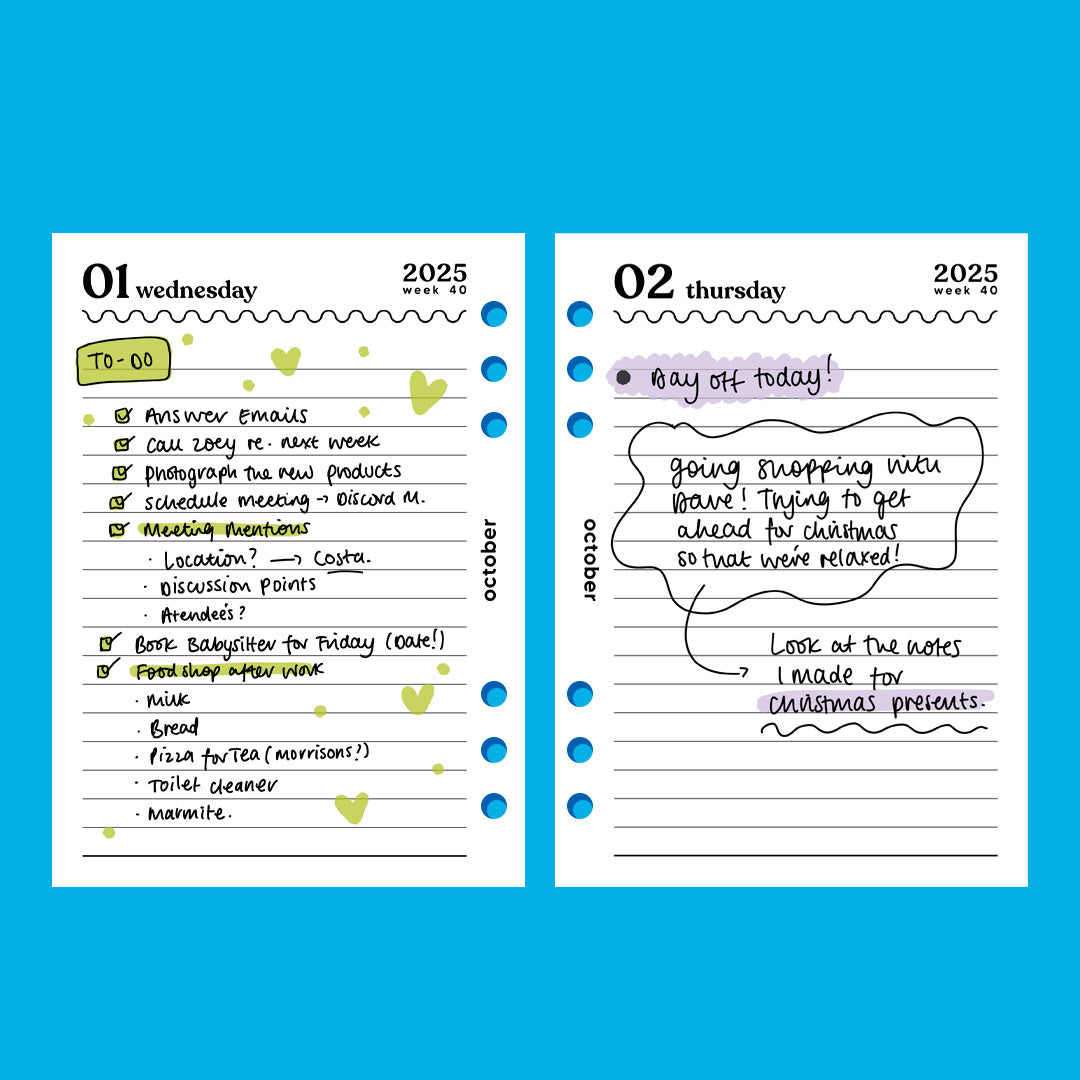 01 wednesday
2025
week 40
TO-DO
Answer Emails
Call Zoey re. next week
Photograph the new products
Schedule meeting → Discord M.
Meeting Mentions
· Location? → Costa.
· Discussion Points
· Atendee's?
Book Babysitter for Friday (Date!)
Food shop after work
· Milk
· Bread
· Pizza for Tea (Morrisons?)
· Toilet cleaner
· Marmite.
october
02 thursday
2025
week 40
Day off today!
going shopping with
Dave! Trying to get
ahead for christmas
so that we're relaxed!
Look at the notes
I made for
christmas presents.
october